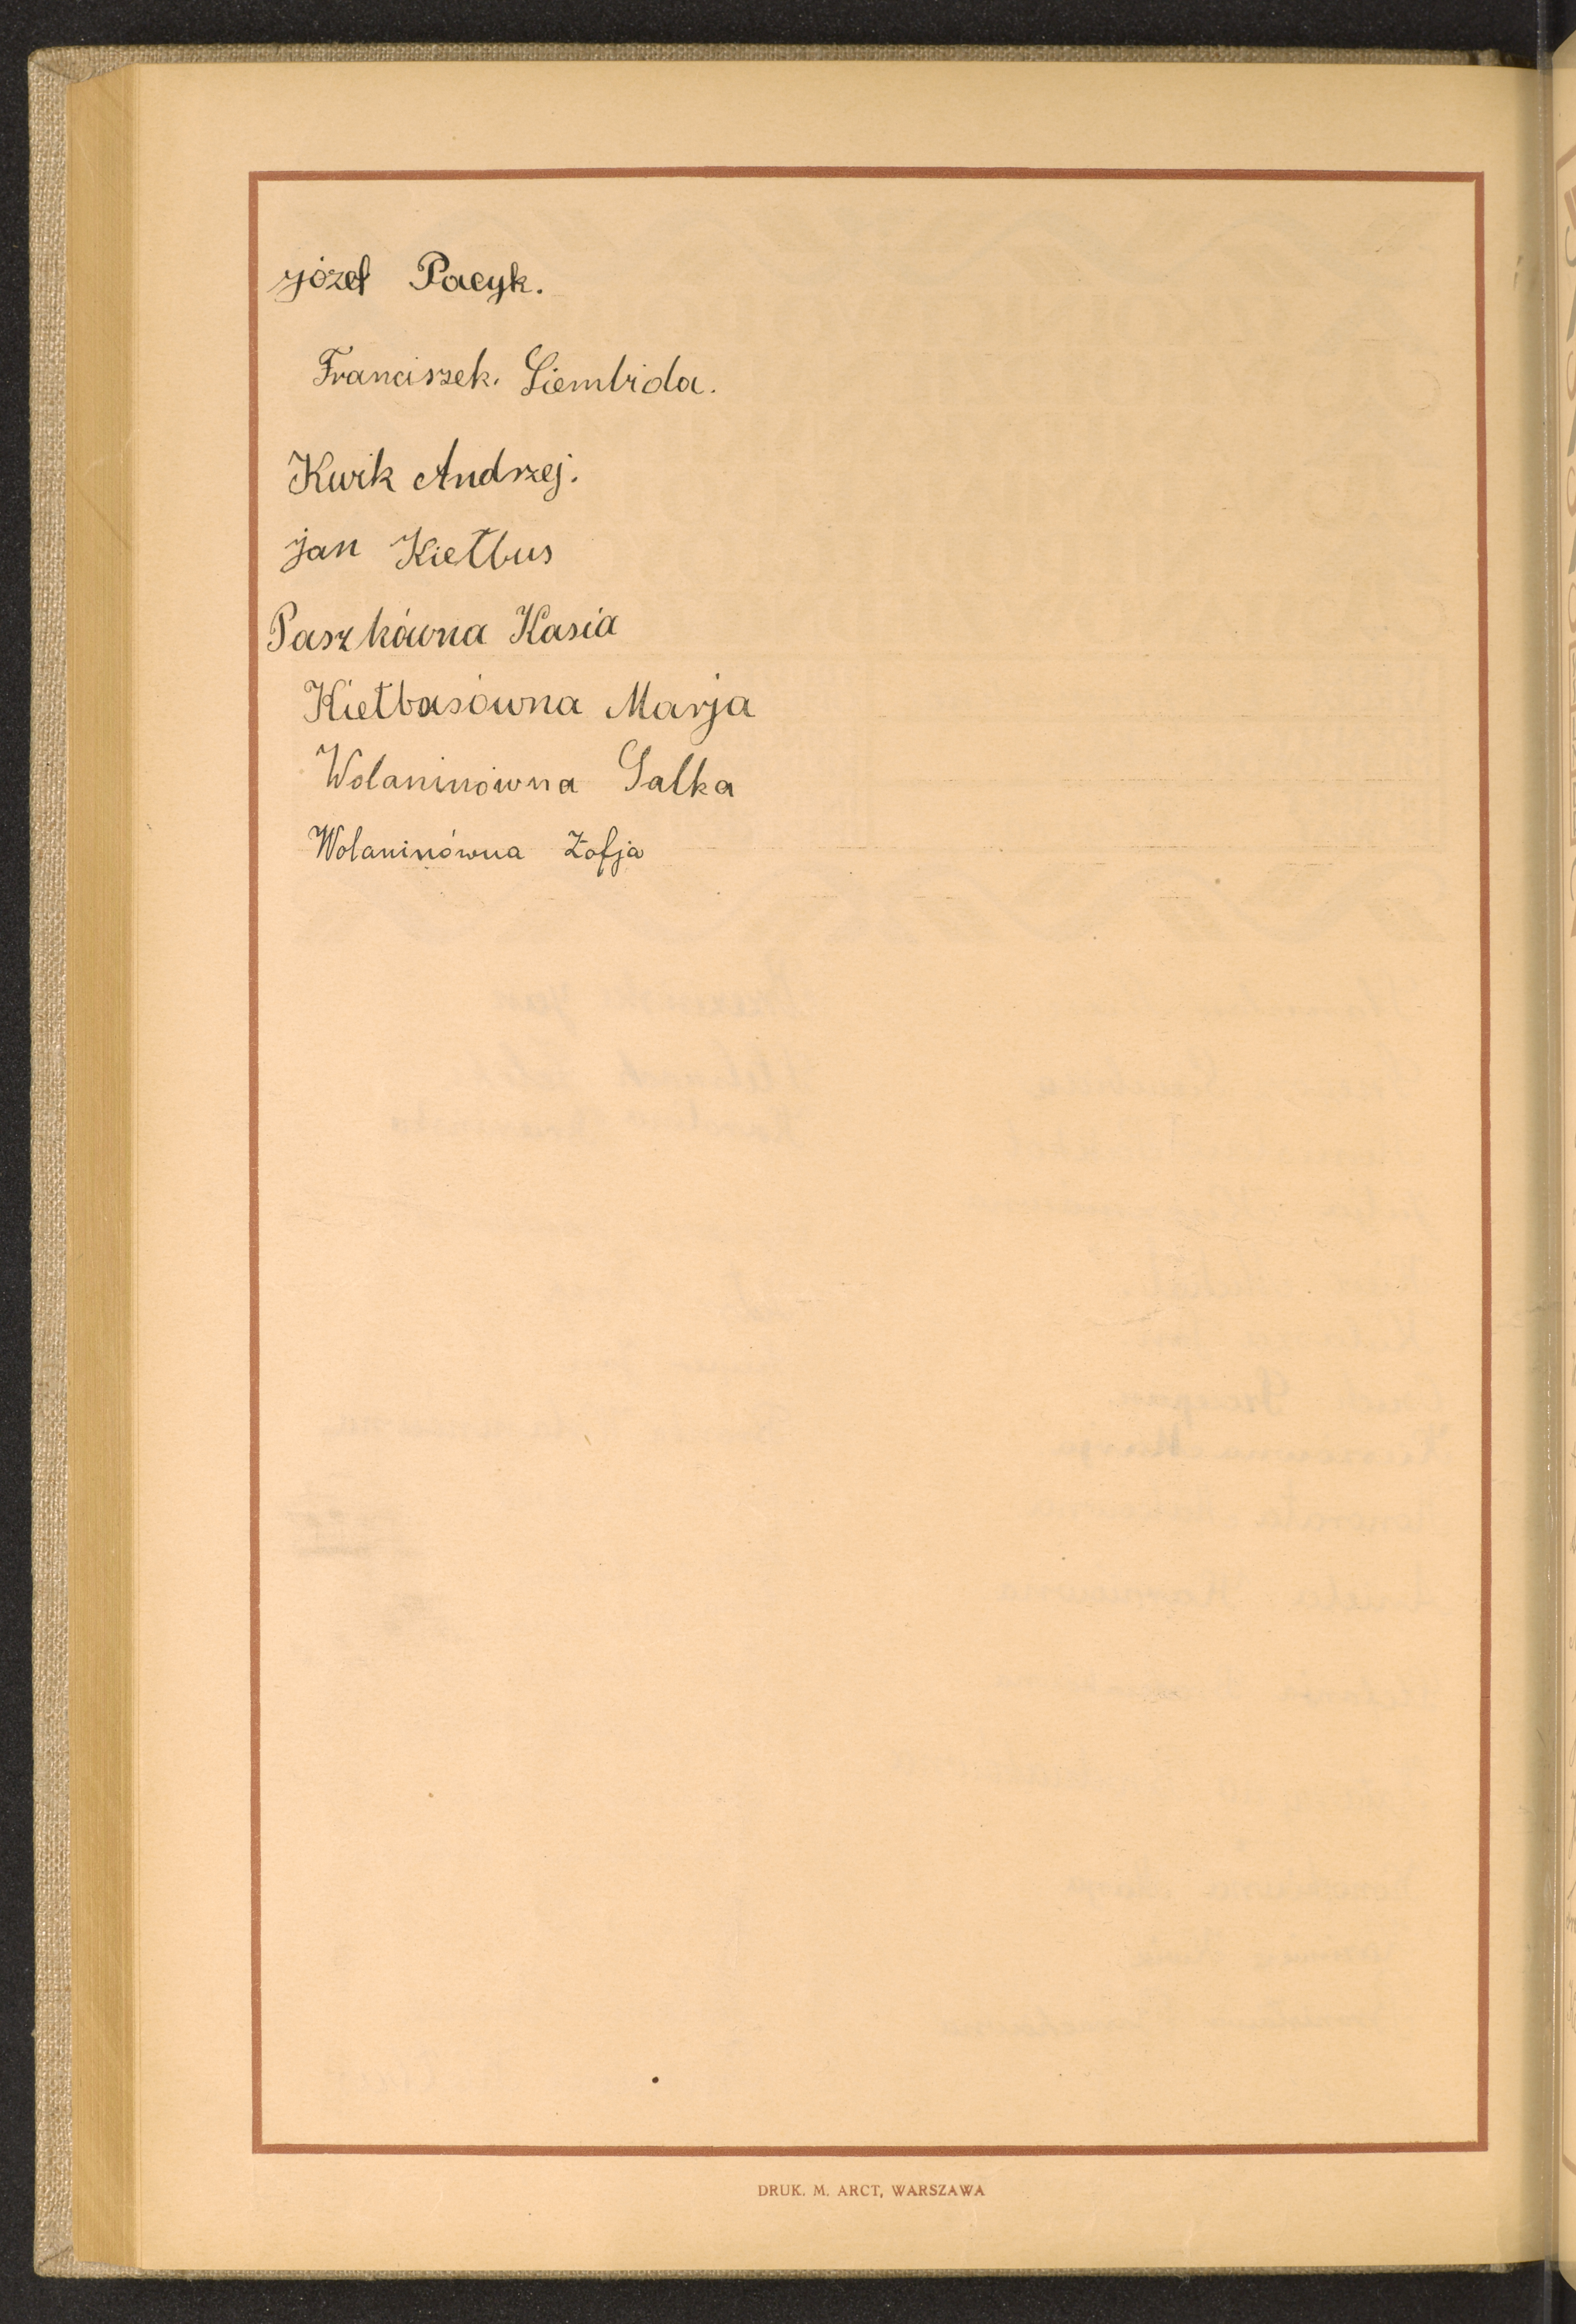 józef Pacyk.
Franciszek. Siembida.
Kwik Andrzej.
jan Kiełbus
Paszkówna Kasia
Kiełbasówna Marja
Wolaninówna Salka
Wolaninówna Zofja
DRUK. M. ARCT, WARSZAWA